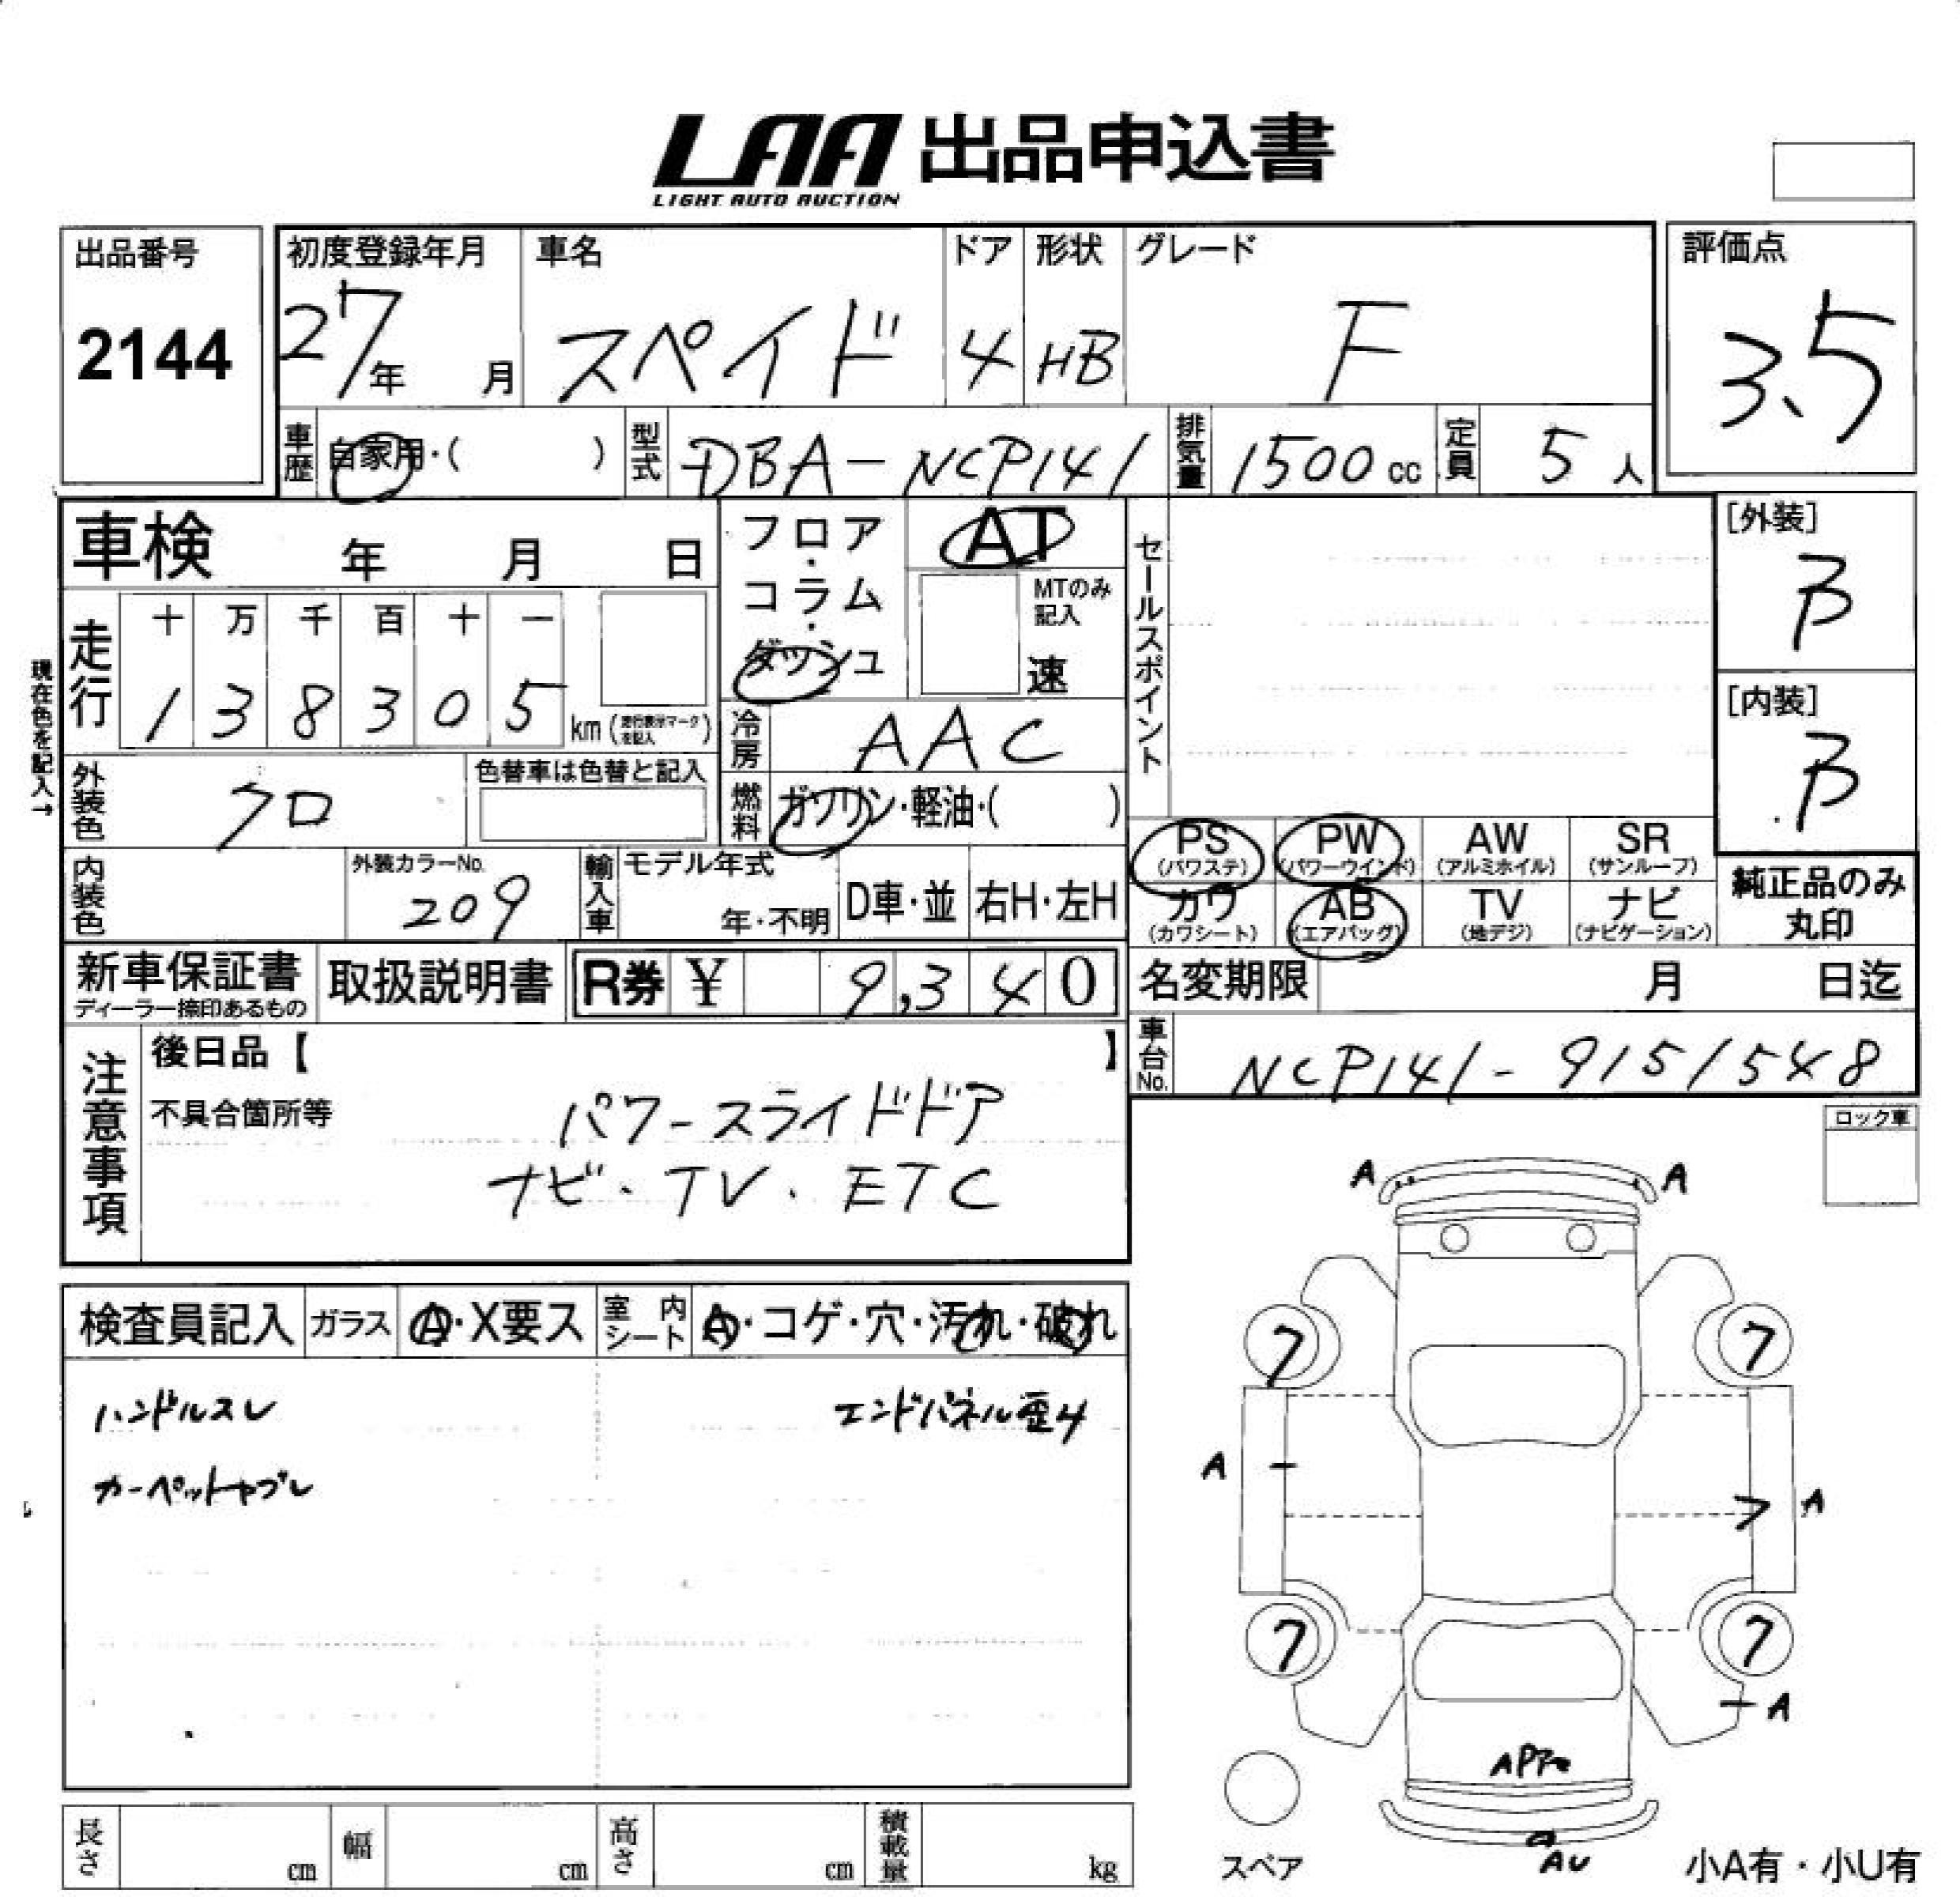 LAA 出品申込書
LIGHT AUTO AUCTION
出品番号
2144
初度登録年月
27年 月
車名
スペイド
ドア
4
形状
HB
グレード
F
評価点
3.5
車歴 自家用・( )
型式 DBA-NCP141
排気量 1500cc
定員 5人
車検 年 月 日
フロア・コラム・ダッシュ
AT
MTのみ記入
速
セールスポイント
[外装]
B
[内装]
B
現在色を記入→
走行
十 万 千 百 十 一
1 3 8 3 0 5 km (走行表示マークを記入)
冷房 AAC
外装色 クロ
色替車は色替と記入
燃料 ガソリン・軽油・( )
PS (パワステ)
PW (パワーウインド)
AW (アルミホイル)
SR (サンルーフ)
カワ (カワシート)
AB (エアバッグ)
TV (地デジ)
ナビ (ナビゲーション)
純正品のみ丸印
内装色
外装カラーNo.
209
輸入車
モデル年式
年・不明
D車・並
右H・左H
新車保証書
ディーラー捺印あるもの
取扱説明書
R券 ¥ 9,340
名変期限 月 日迄
車台No. NCP141-9151548
注意事項
後日品【 】
不具合箇所等
パワースライドドア
ナビ・TV・ETC
ロック車
検査員記入
ガラス A・X要ス
室内シート A・コゲ・穴・汚れ・破れ
ハンドルスレ
エンドパネル歪み
カーペットヤブレ
A A
7 7
A A
7 7
A
AU
スペア
小A有・小U有
長さ cm
幅 cm
高さ cm
積載量 kg